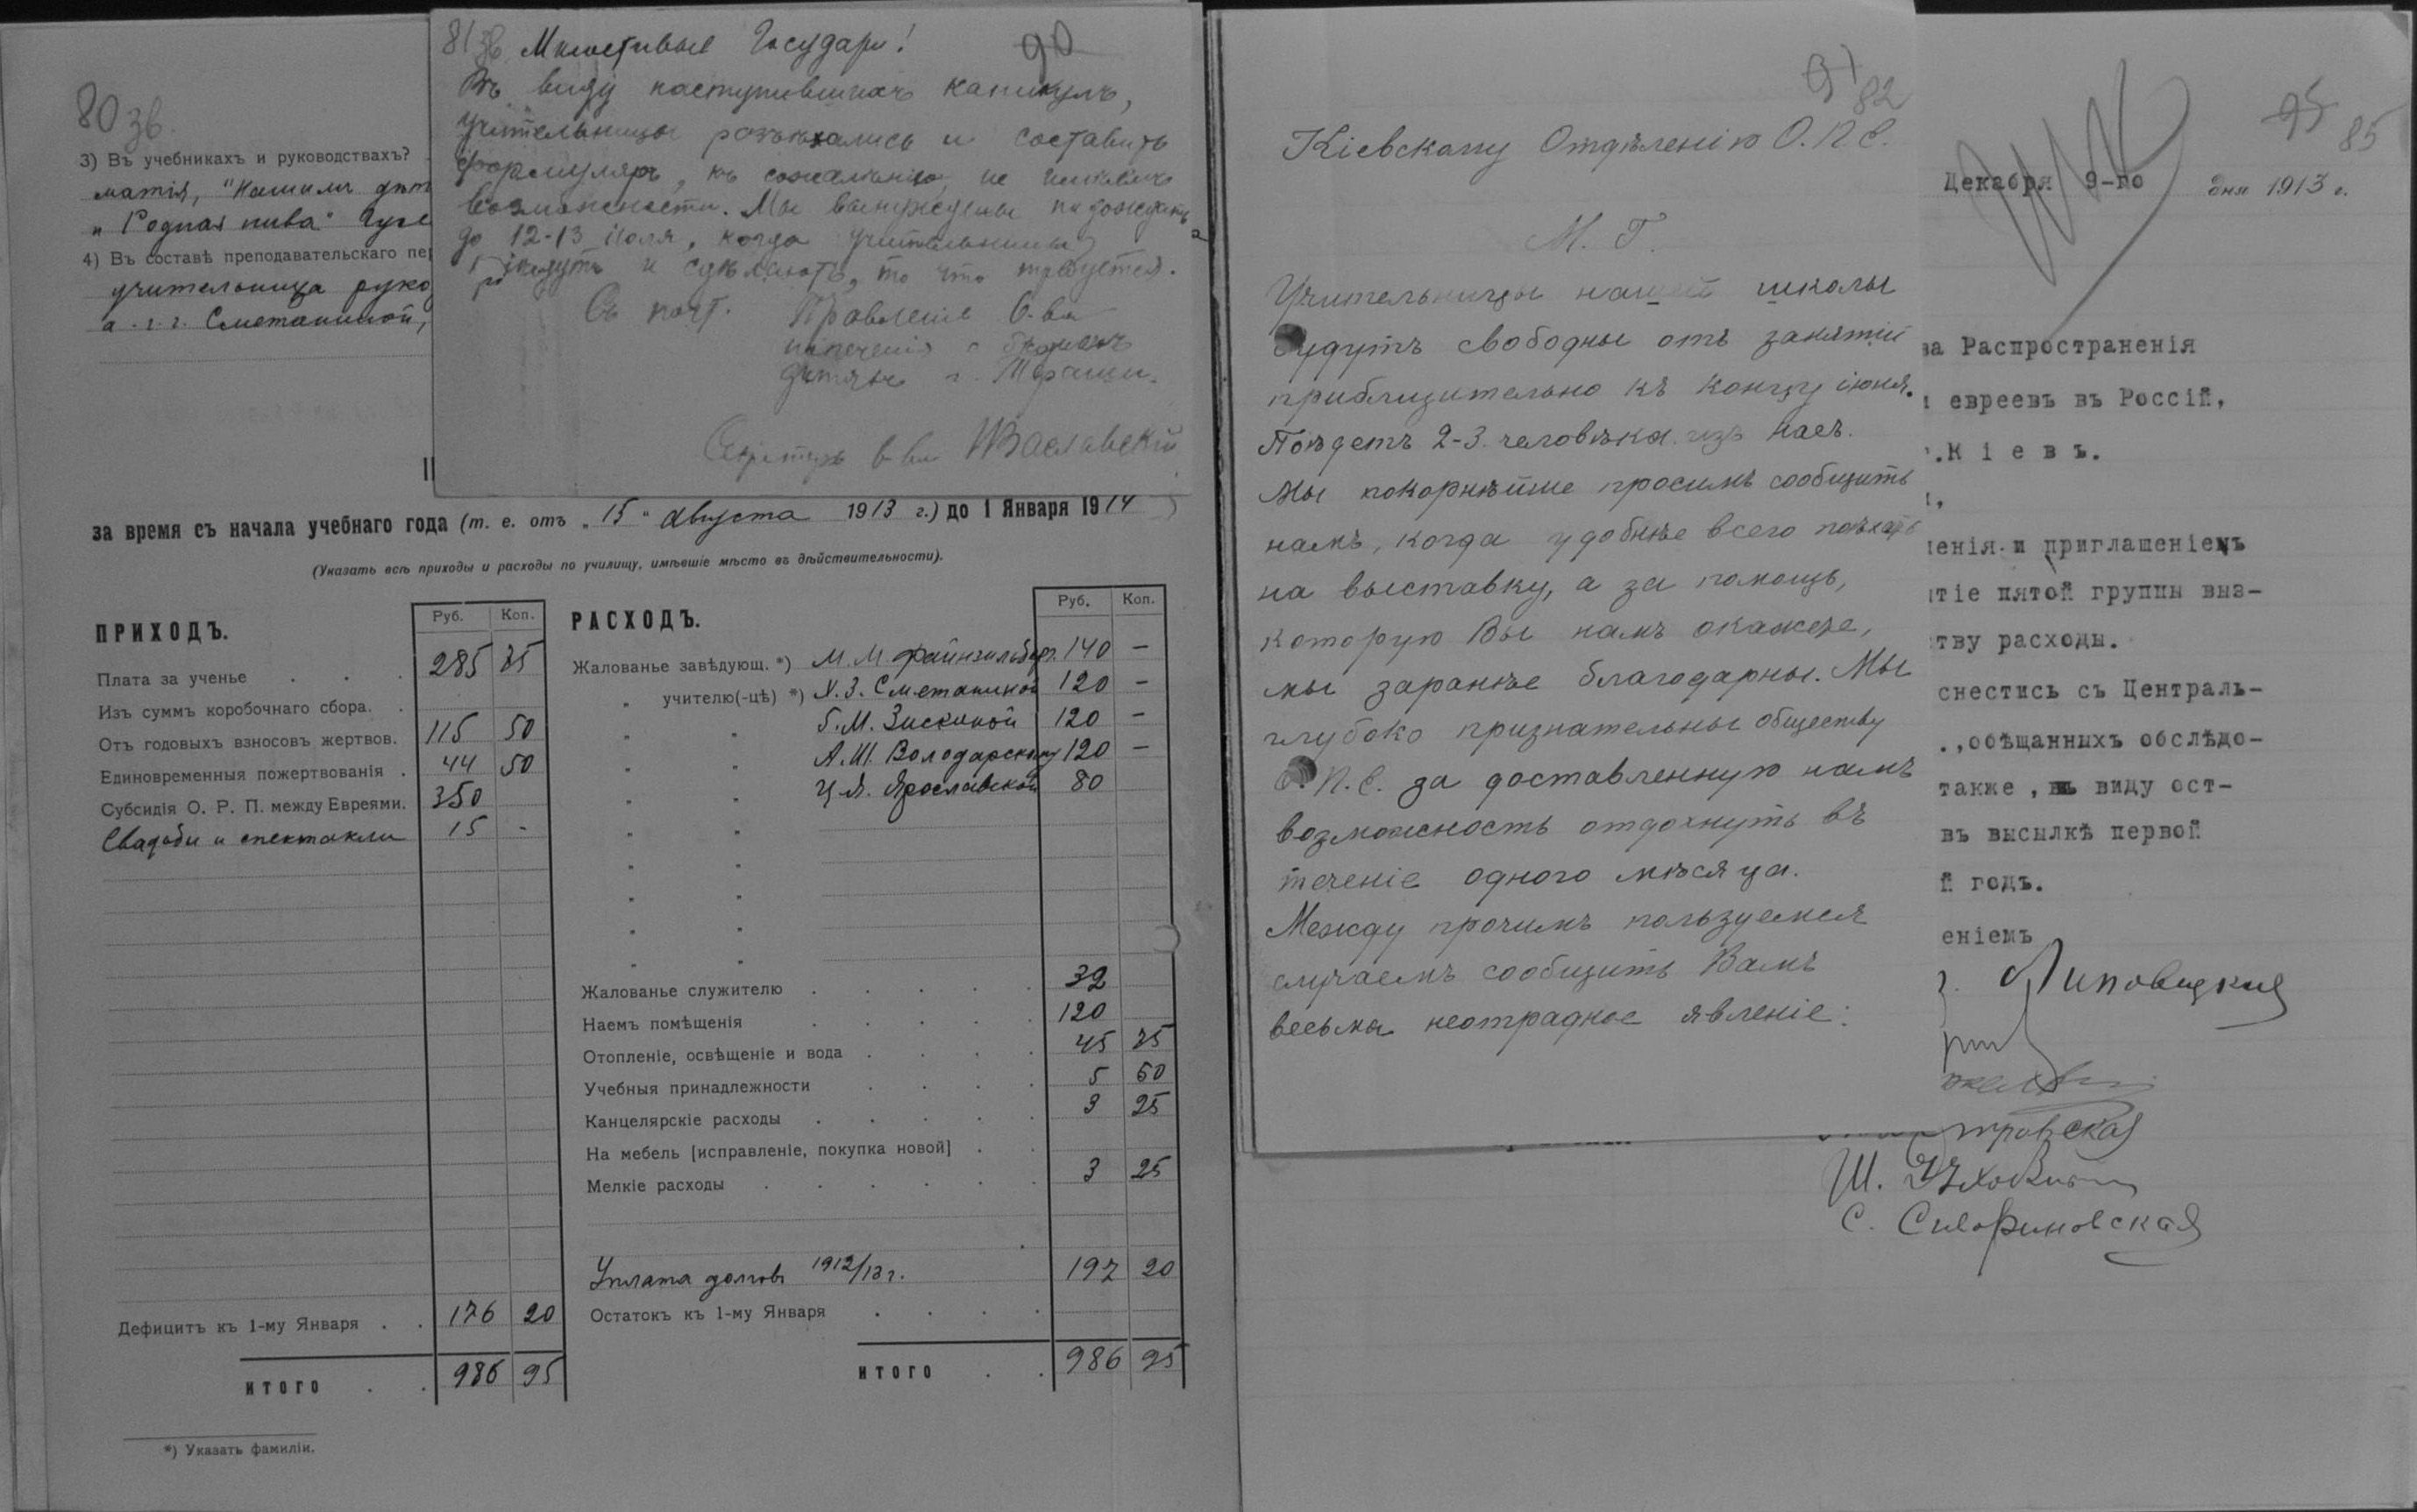 80 зв.
3) Въ учебникахъ и руководствахъ?
матія, "Нашимъ дѣт
"Родная нива"
4) Въ составѣ преподавательскаго пер
учительница руко
а. г. г. Сметаниной,
81 зв. Милостивые Государи! 90
Въ виду наступившихъ каникулъ,
учительницы разъѣхались и составить
формуляръ, къ сожалѣнію, не имѣемъ
возможности. Мы вынуждены подождать
до 12-13 іюля, когда учительницы
пріѣдутъ и сдѣлаютъ, то что требуется.
Съ почт. Правленіе О-ва
попеченія о бѣдныхъ
дѣтяхъ г. Таращи.
Секретарь О-ва
за время съ начала учебнаго года (т. е. отъ "15" августа 1913 г.) до 1 Января 1914
(Указать всѣ приходы и расходы по училищу, имѣвшіе мѣсто въ дѣйствительности).
ПРИХОДЪ. Руб. Коп.
Плата за ученье 285 75
Изъ суммъ коробочнаго сбора.
Отъ годовыхъ взносовъ жертвов. 115 50
Единовременныя пожертвованія 44 50
Субсидія О. Р. П. между Евреями. 350
Свадьбы и спектакли 15 -
Дефицитъ къ 1-му Января 176 20
ИТОГО 986 95
*) Указать фамиліи.
РАСХОДЪ. Руб. Коп.
Жалованье завѣдующ. *) М. М. Файнзильберг. 140 —
" учителю(-цѣ) *) Х. З. Сметаниной 120 —
" " Б. М. Зискиной 120 —
" " А. Ш. Володарскому 120 —
" " Ц. Я. Ярославской 80
" "
" "
" "
" "
" "
Жалованье служителю 32
Наемъ помѣщенія 120
Отопленіе, освѣщеніе и вода 45 75
Учебныя принадлежности 5 50
Канцелярскіе расходы 3 25
На мебель [исправленіе, покупка новой]
Мелкіе расходы 3 25
Уплата долговъ 1912/13 г. 197 20
Остатокъ къ 1-му Января
ИТОГО 986 95
91
82
Кіевскому Отдѣленію О. П. Е.
М. Г.
Учительницы нашей школы
будутъ свободны отъ занятій
приблизительно къ концу іюня.
Поѣдетъ 2-3 человѣка изъ насъ.
Мы покорнѣйше просимъ сообщить
намъ, когда удобнѣе всего поѣхать
на выставку, а за помощь,
которую Вы намъ окажете,
мы заранѣе благодарны. Мы
глубоко признательны обществу
О. П. Е. за доставленную намъ
возможность отдохнуть въ
теченіе одного мѣсяца.
Между прочимъ пользуемся
случаемъ сообщить Вамъ
весьма неотрадное явленіе:
95
85
Декабря 9-го дня 1913 г.
ва Распространенія
и евреевъ въ Россій,
г.Кіевъ.
ленія и приглашеніемъ
тіе пятой группы выз-
тву расходы.
снестись съ Централь-
.,обѣщанныхъ обслѣдо-
также, въ виду ост-
въ высылкѣ первой
й годъ.
еніемъ
Липовецкий
С.